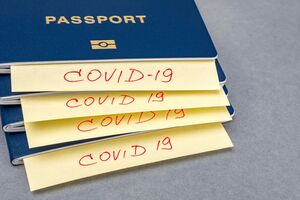 PASSPORT
COVID-19
COVID 19
COVID 19
COVID 19